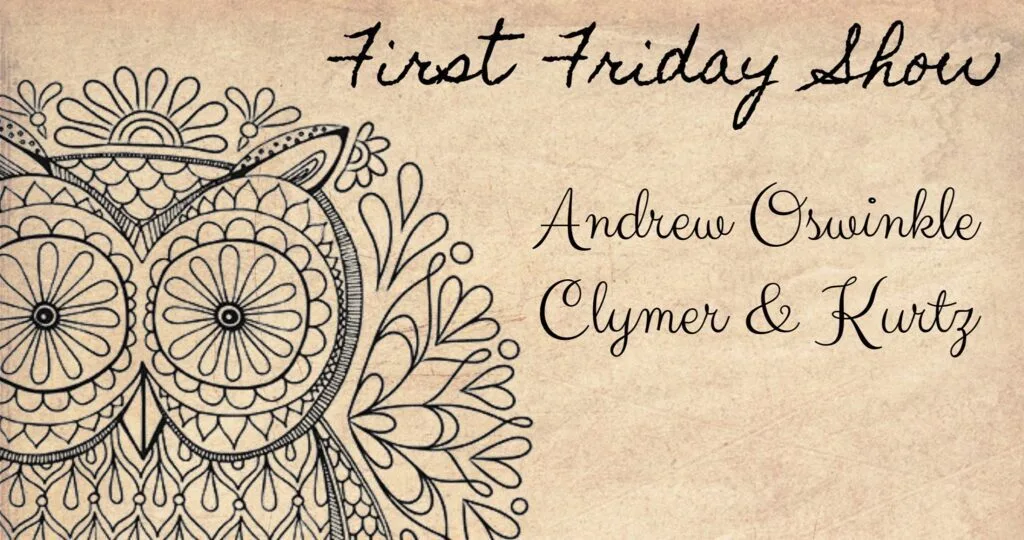 First Friday Show
Andrew Oswinkle
Clymer & Kurtz